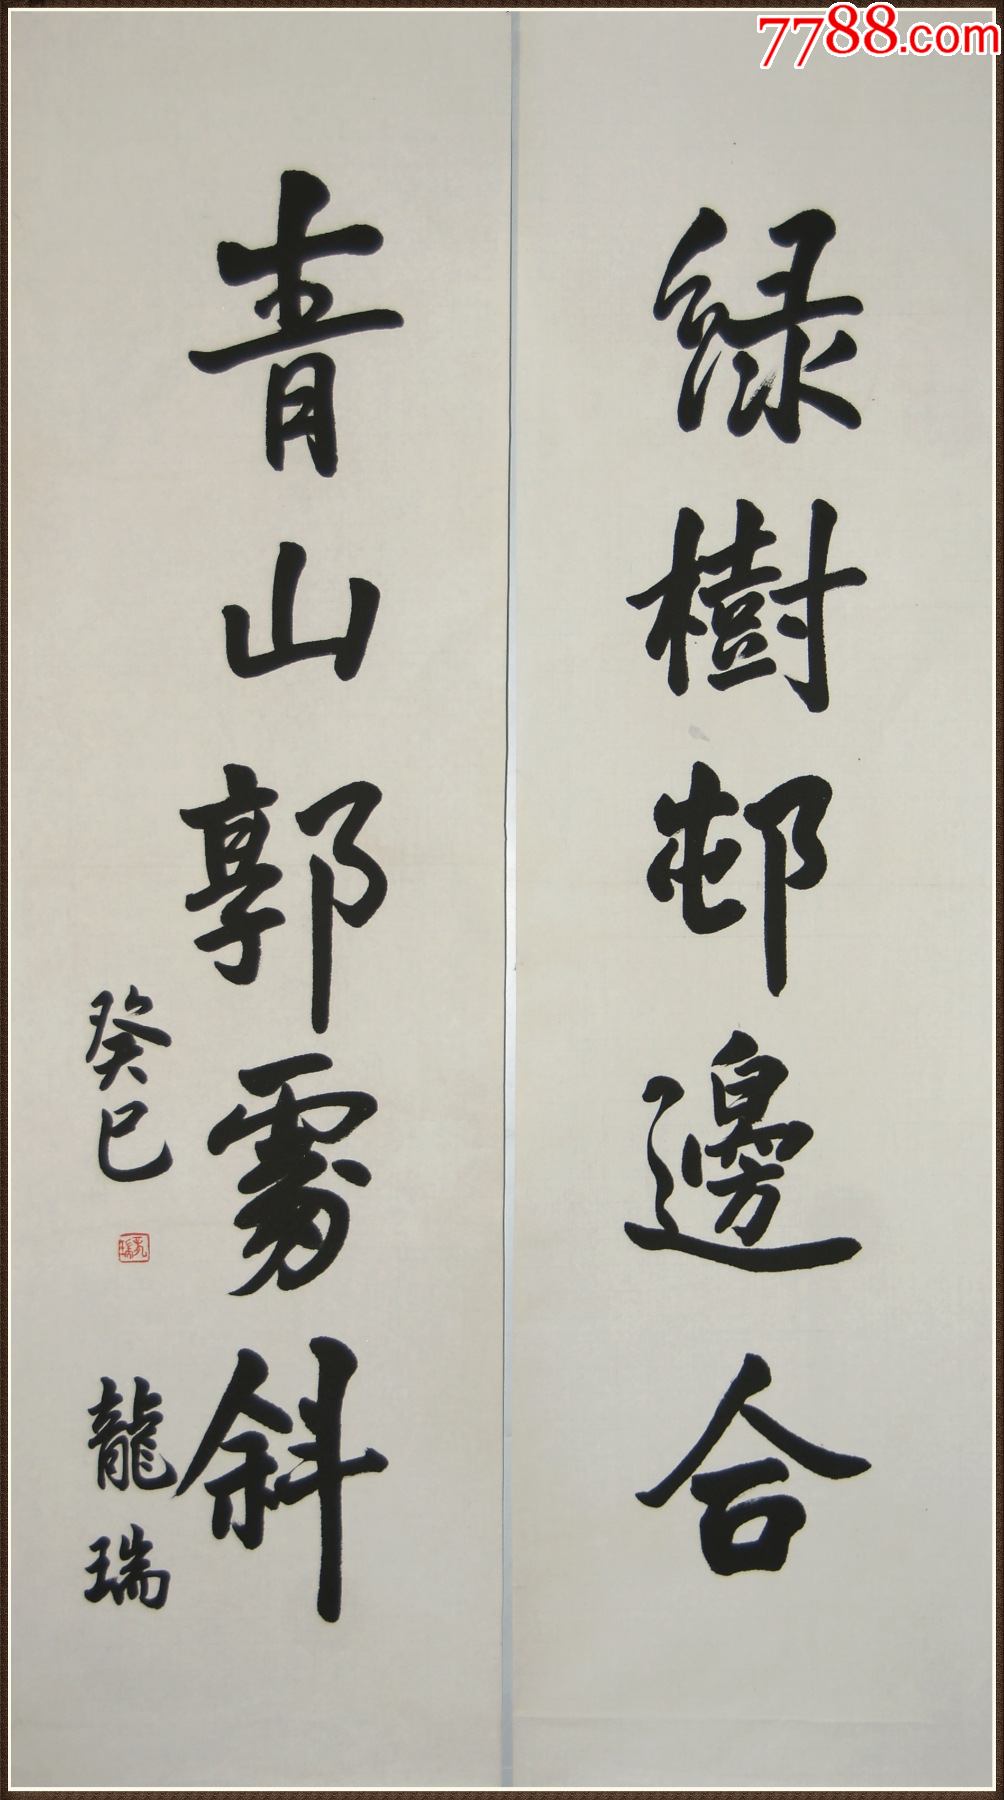 7788.com
緑樹邨邊合
青山郭斜
癸巳 龍瑞